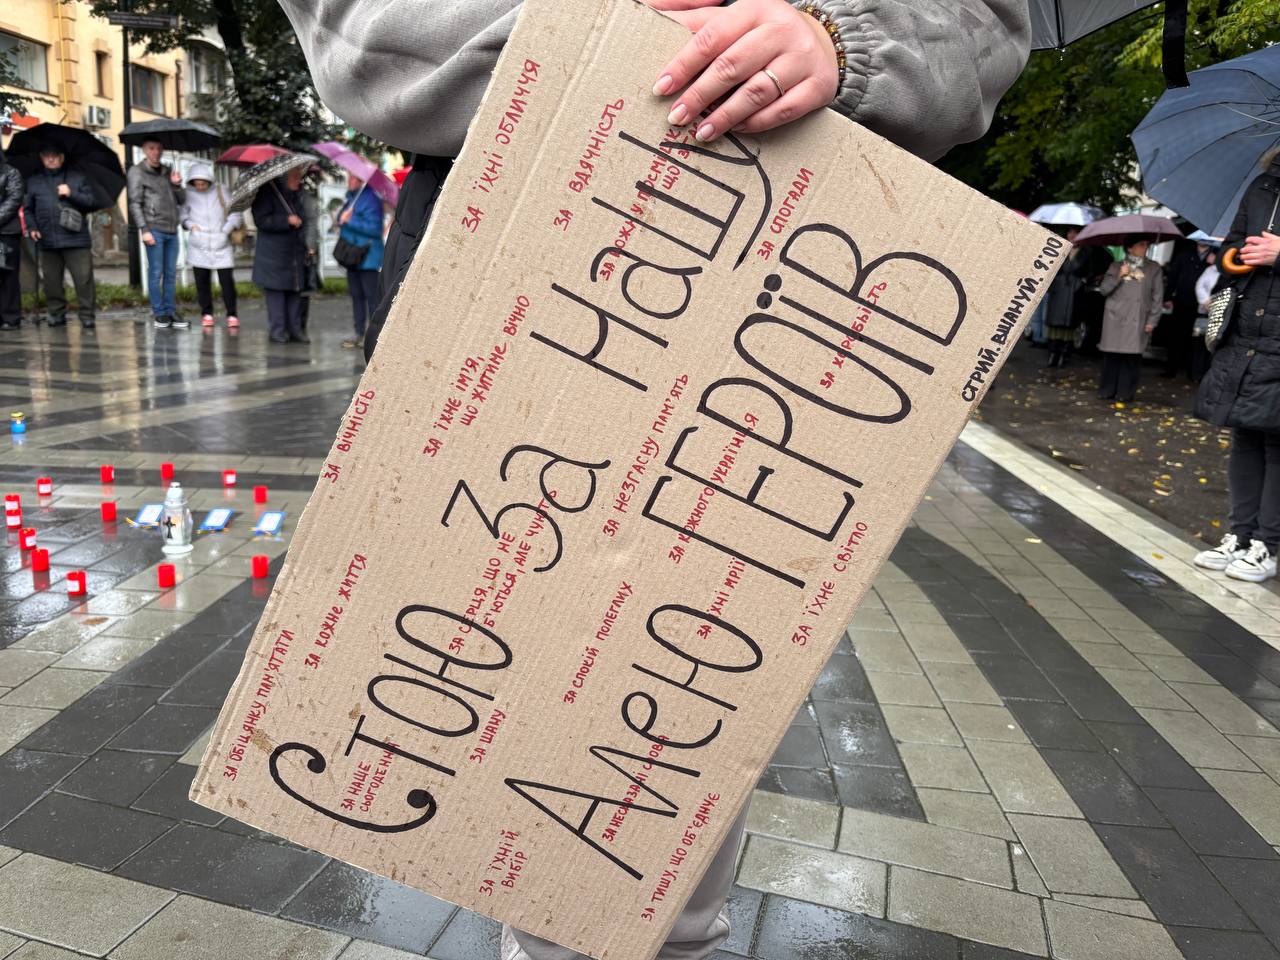 Стою За Нашу
Алею ГЕРОЇВ
СТРИЙ. ВШАНУЙ. 9:00
ЗА ЇХНІ ОБЛИЧЧЯ
ЗА ВДЯЧНІСТЬ
ЗА СПОГАДИ
ЗА ХОРОБРІСТЬ
ЗА ЇХНЄ ІМ'Я,
ЩО ЖИТИМЕ ВІЧНО
ЗА ВІЧНІСТЬ
ЗА НЕЗГАСНУ ПАМ'ЯТЬ
ЗА КОЖНОГО УКРАЇНЦЯ
ЗА ЇХНЄ СВІТЛО
ЗА СЕРЦЯ, ЩО НЕ
Б'ЮТЬСЯ, АЛЕ ЧУЮТЬ
ЗА КОЖНЕ ЖИТТЯ
ЗА СПОКІЙ ПОЛЕГЛИХ
ЗА ЇХНІ МРІЇ
ЗА ОБІЦЯНКУ ПАМ'ЯТАТИ
ЗА НАШЕ
СЬОГОДЕННЯ
ЗА ШАНУ
ЗА НЕСКАЗАНІ СЛОВА
ЗА ЇХНІЙ
ВИБІР
ЗА ТИШУ, ЩО ОБ'ЄДНУЄ